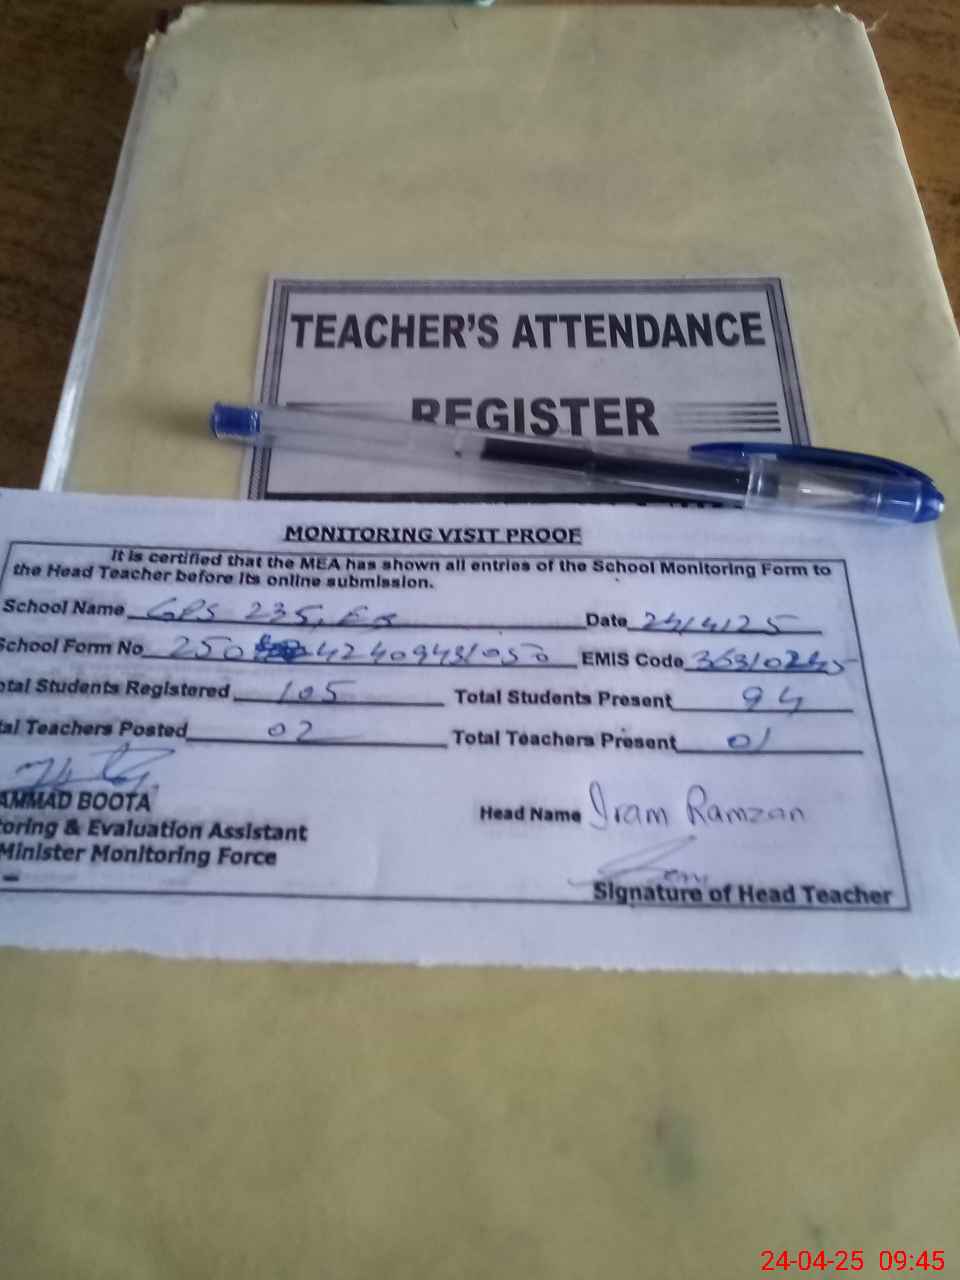 TEACHER'S ATTENDANCE
REGISTER
MONITORING VISIT PROOF
It is certified that the MEA has shown all entries of the School Monitoring Form to
the Head Teacher before its online submission.
School Name GPS 235, EB Date 24/4/25
School Form No 250 EMIS Code 36310245
otal Students Registered 105 Total Students Present 94
tal Teachers Posted 02 Total Teachers Present 01
AMMAD BOOTA
Head Name Iram Ramzan
toring & Evaluation Assistant
Minister Monitoring Force
Signature of Head Teacher
24-04-25 09:45